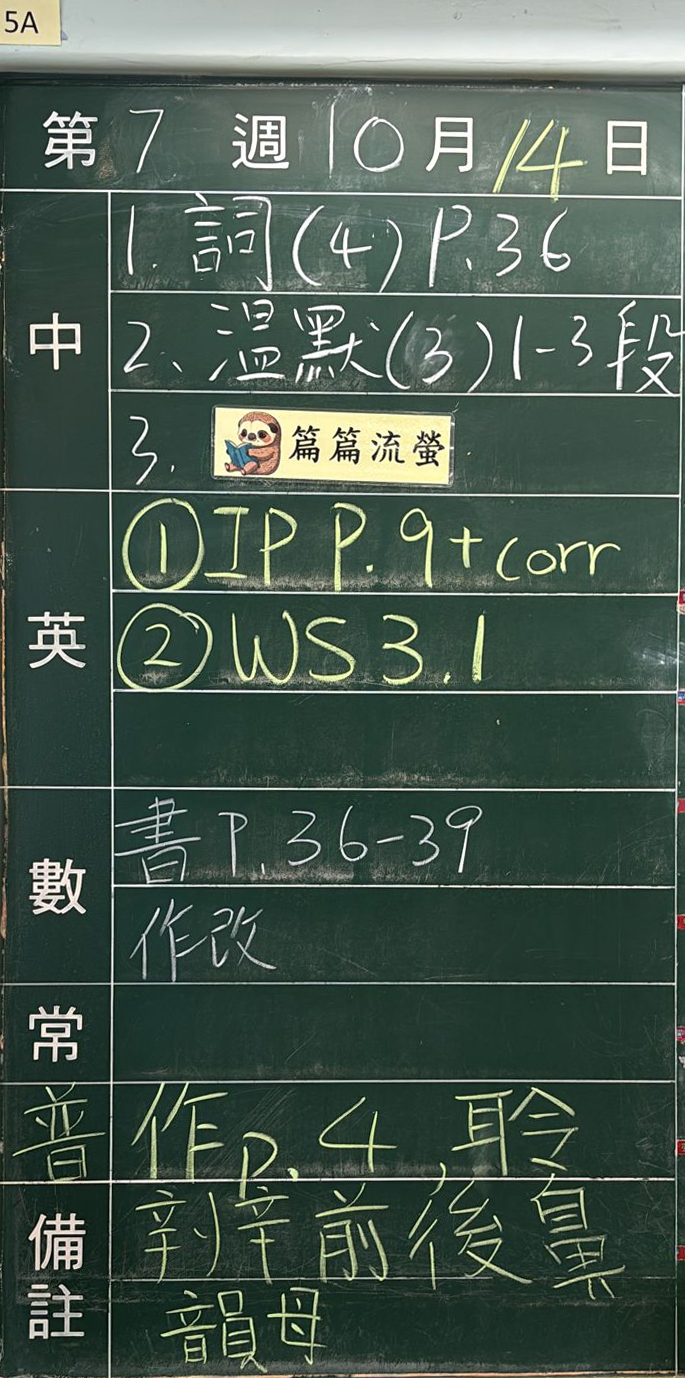 5A
第7週10月14日
中
1. 詞(4) P.36
2、溫默(3) 1-3段
3. 篇篇流螢
英
①IP P.9+corr
②WS 3.1
數
書 P.36-39
作改
常
普
作P.4,聆
備註
辨前後鼻
韻母